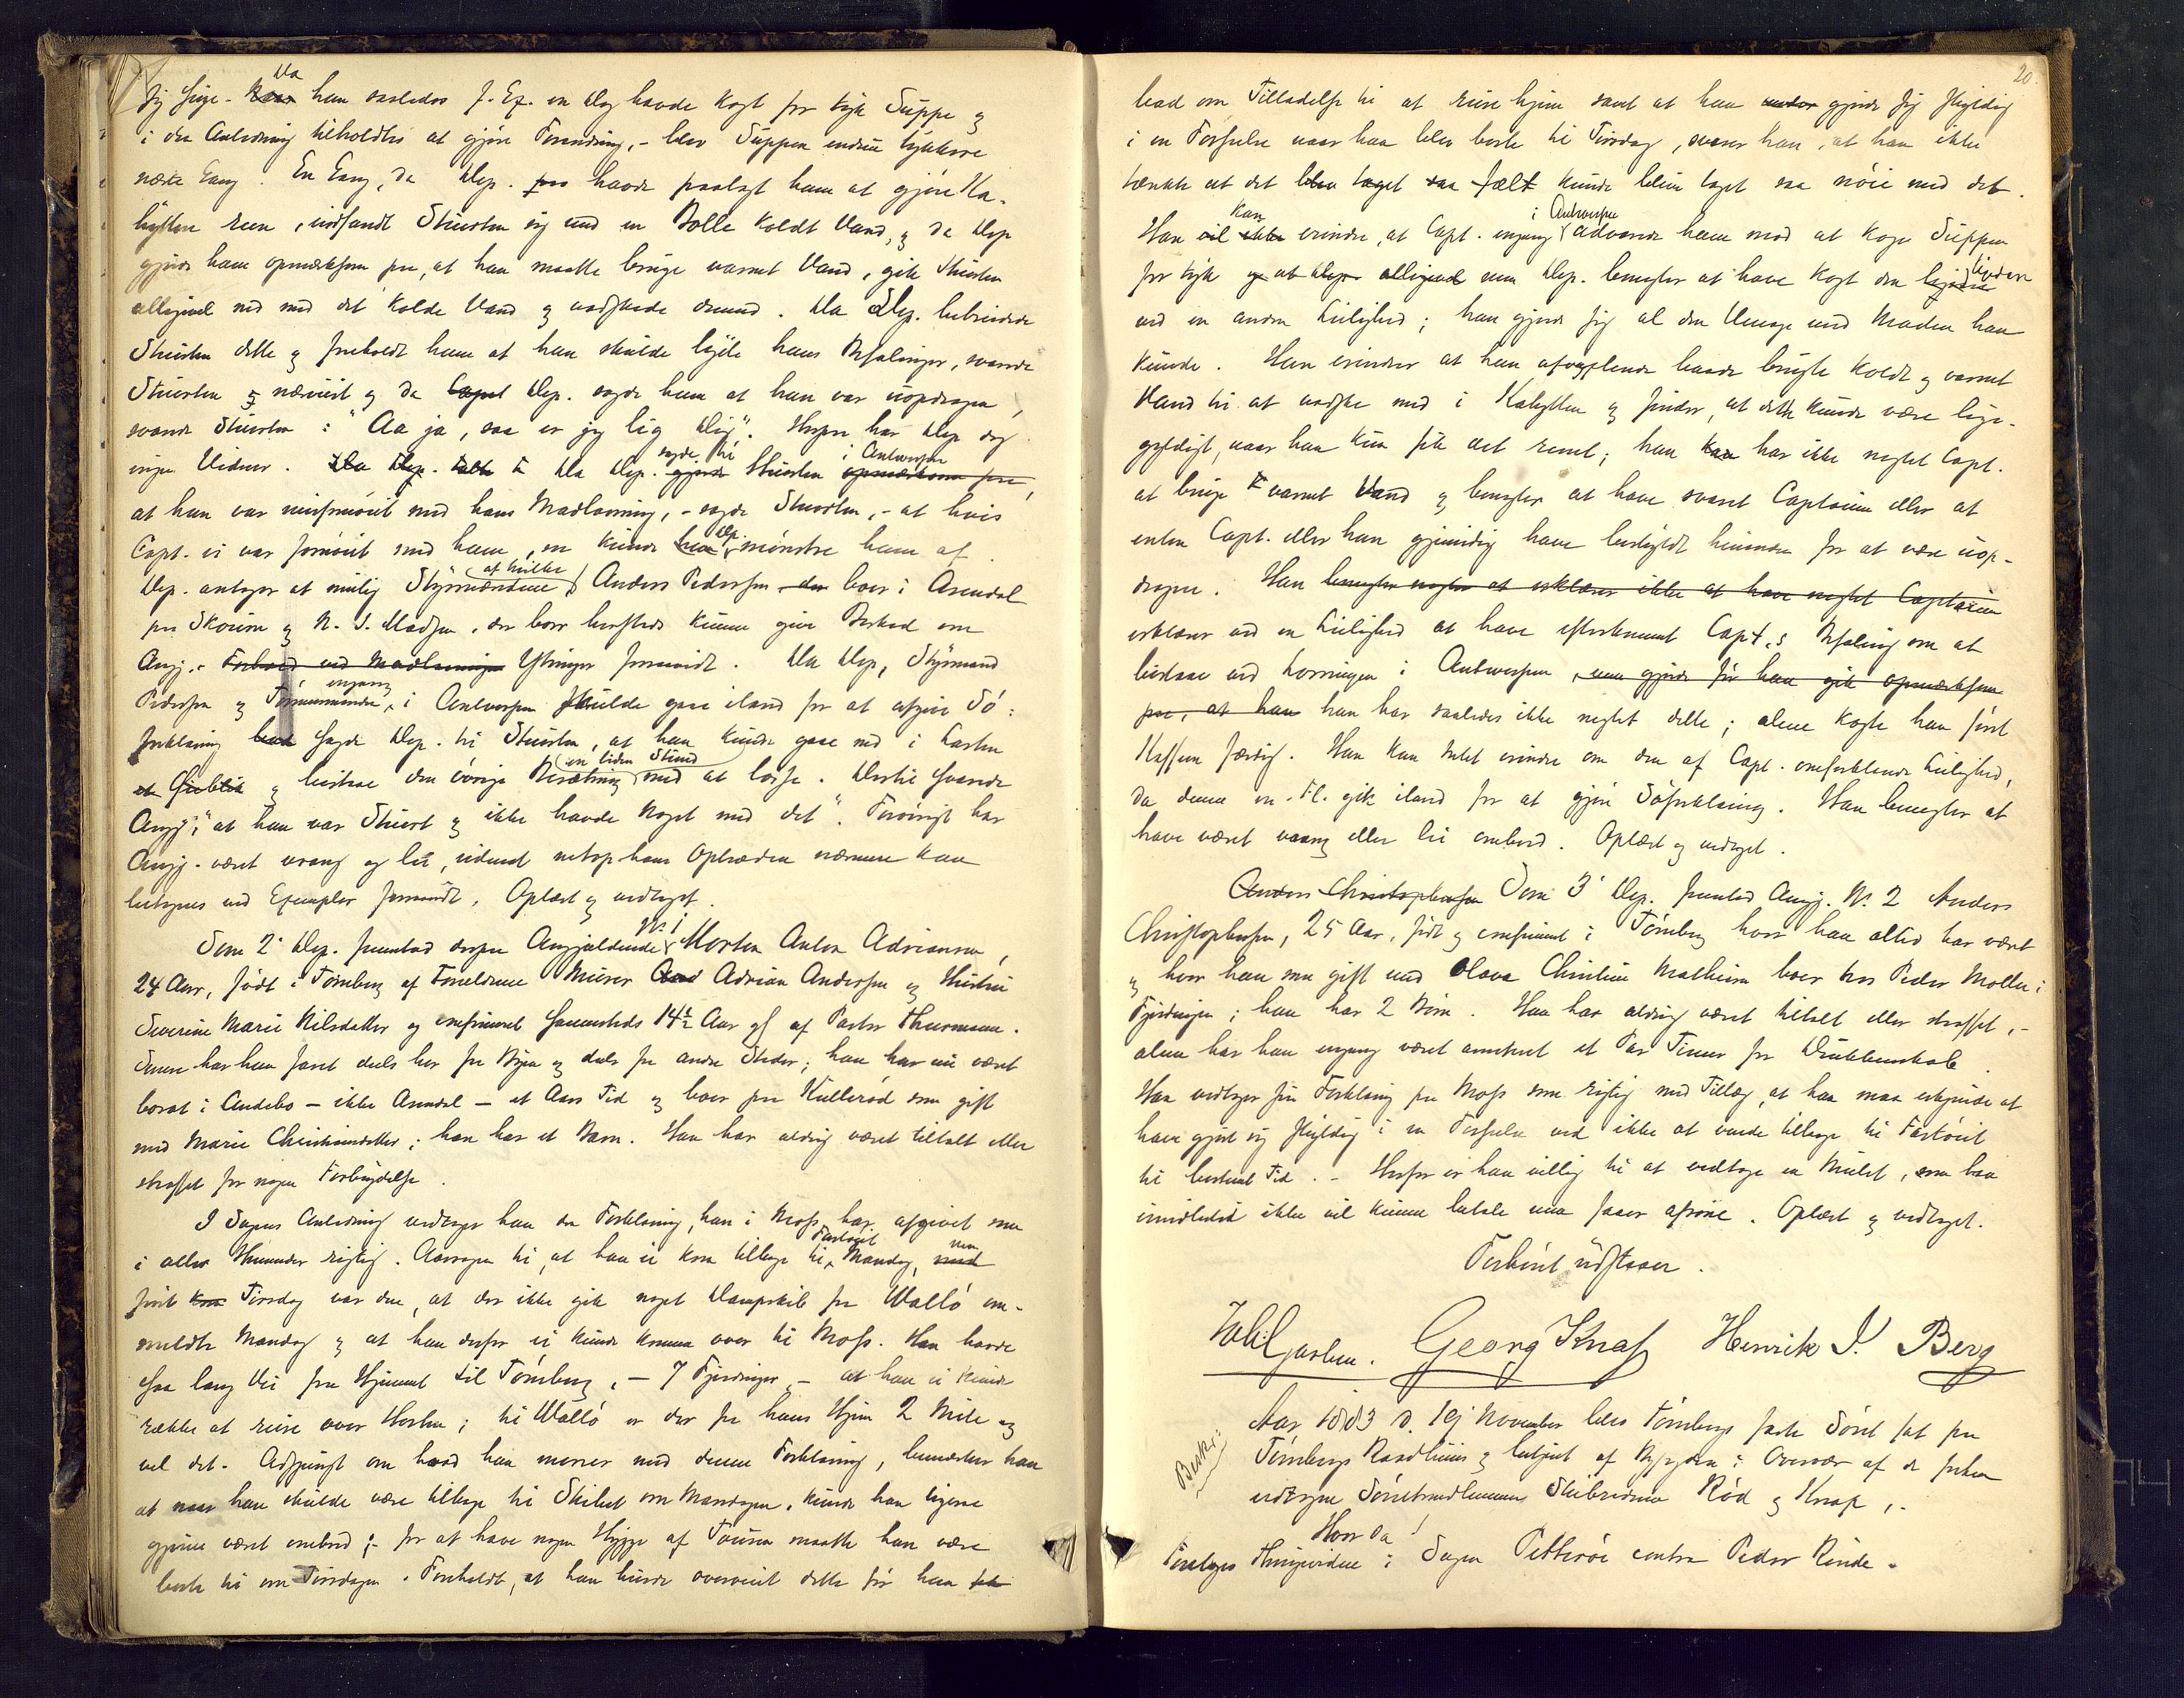 sig sige. Da han saaledes f. Ex. en Dag havde kogt for tyk Suppe og
i den Anledning tilholdtes at gjøre Forandring, - blev Suppen endnu tykkere
næste Gang. En Gang, da Dep. havde paalagt ham at gjøre Ka-
hytten reen, indfandt Stuerten sig med en Bolle koldt Vand, og da Dep
gjorde ham opmærksom paa, at han maatte bruge varmt Vand, gik Stuerten
alligevel ned med det kolde Vand og vadskede dermed. Da Dep. bebreidede
Stuerten dette og foreholdt ham at han skulde lyde hans Befalinger, svarede
Stuerten næsviist og da Dep. sagde ham at han var uopdragen,
svarede Stuerten: "Aa ja, saa er jeg lig Dig". Herpaa har Dep dog
ingen Vidner. Da Dep. sagde til Stuerten i Antwerpen
at han var misfornøiet med hans Madlavning, - sagde Stuerten, - at hvis
Capt. ei var fornøiet med ham, saa kunde Dep. mønstre ham af.
Dep. antager at muligt Styrmændene, af hvilke Anders Pedersen boer i Arendal
paa Skouen og N. J. Madsen, der boer hersteds kunne give Besked om
Angj. Ytringer forsaavidt. Da Dep, Styrmand
Pedersen og Tømmermanden engang i Antwerpen skulde gaae iland for at afgive Sø:
forklaring sagde Dep. til Stuerten, at han kunde gaae ned i Lasten
og bistaae den øvrige Besætning en liden Stund med at losse. Dertil svarede
Angj. "at han var Stuert og ikke havde noget med det". Forøvrigt har
Angj. været vrang og lei, uden at netop hans Optræden nærmere kan
betegnes ved Exempler forsaavidt. Oplæst og vedtaget.
Som 2' Dep. fremstod derpaa Angjældende No. 1 Morten Anton Adriansen,
24 Aar, født i Tønsberg af Forældrene Murer Adrian Andersen og Hustru
Severine Marie Nilsdatter og confirmeret sammesteds 14½ Aar gl af Pastor Thurmann.
Senere har han faret deels her fra Byen og deels fra andre Steder; han har nu været
bosat i Andebo - ikke Arendal - et Aars Tid og boer paa Kullerød som gift
med Marie Christiansdatter; han har et Barn. Han har aldrig været tiltalt eller
straffet for nogen Forbrydelse.
I Sagens Anledning vedtager han den Forklaring, han i Moss har afgivet som
i alle Henseender rigtig. Aarsagen til, at han ei kom tilbage til Fartøiet Mandag, men
først Tirsdag var den, at der ikke gik noget Dampskib fra Vallø om-
meldte Mandag og at han derfor ei kunde komme over til Moss. Han havde
saa lang Vei fra Hjemmet til Tønsberg, - 7 Fjerdinger - at han ei kunde
række at reise over Horten; til Vallø er der fra hans Hjem 2 Mile og
vel det. Adspurgt om hvad han mener med denne Forklaring, bemærker han
at naar han skulde være tilbage til Skibet om Mandagen, kunde han ligesaa
gjerne været ombord; - for at have nogen Hygge af Touren maatte han være
borte til om Tirsdagen. Foreholdt, at han burde overveiet dette før han
20
bad om Tilladelse til at reise hjem samt at han gjorde sig skyldig
i en Forseelse naar han blev borte til Tirsdag, svarer han, at han ikke
tænkte at det kunde blive taget saa nøie med det.
Han kan erindre, at Capt. engang i Antwerpen advarede ham mod at koge Suppen
for tyk men Dep. benegter at have kogt den tykkere
ved en anden Leilighed; han gjorde sig al den Umage med Maden han
kunde. Han erindrer at han afvexlende baade brugte koldt og varmt
Vand til at vadske med i Kahytten og finder, at dette kunde være lige-
gyldigt, naar han kun fik det reent; han har ikke negtet Capt.
at bruge varmt Vand og benegter at have svaret Captainen eller at
enten Capt. eller han gjensidig have beskyldt hinanden for at være uop-
dragen. Han
erklærer ved en Leilighed at have efterkommet Capt.s Befaling om at
bistaae ved Losningen i Antwerpen,
han har saaledes ikke negtet dette; alene kogte han først
Kaffeen færdig. Han kan Intet erindre om den af Capt. omforklarede Leilighed,
da denne m. Fl. gik iland for at gjøre Søforklaring. Han benegter at
have været vrang eller lei ombord. Oplæst og vedtaget.
Som 3' Dep. fremstod Angj. No. 2 Anders
Christophersen, 25 Aar, født og confirmeret i Tønsberg hvor han altid har været
og hvor han som gift med Olava Christine Mathisen boer hos Peder Møller i
Fjerdingen; han har 2 Børn. Han har aldrig været tiltalt eller straffet, -
alene har han engang været arresteret et Par Timer for Drukkenskab.
Han vedtager sin Forklaring paa Moss som rigtig med Tillæg, at han maa erkjende at
have gjort sig skyldig i en Forseelse ved ikke at vende tilbage til Fartøiet
til bestemt Tid. - Herfor er han villig til at vedtage en Mulct, som han
imidlertid ikke vil kunne betale uden faaer afsone. Oplæst og vedtaget.
Forhøret udsat.
Georg Knap Henrik J. Berg
Aar 1883 d. 19 November blev Tønsbergs faste Søret sat paa
Tønsbergs Raadhuus og betjent af Byfogden i Overvær af de forhen
udtagne Søretsmedlemmer Skibsrederne Rød og Knap, -
Hvor da!
Foretages Thingvidne i Sagen Petterøe contra Peder Rinde.